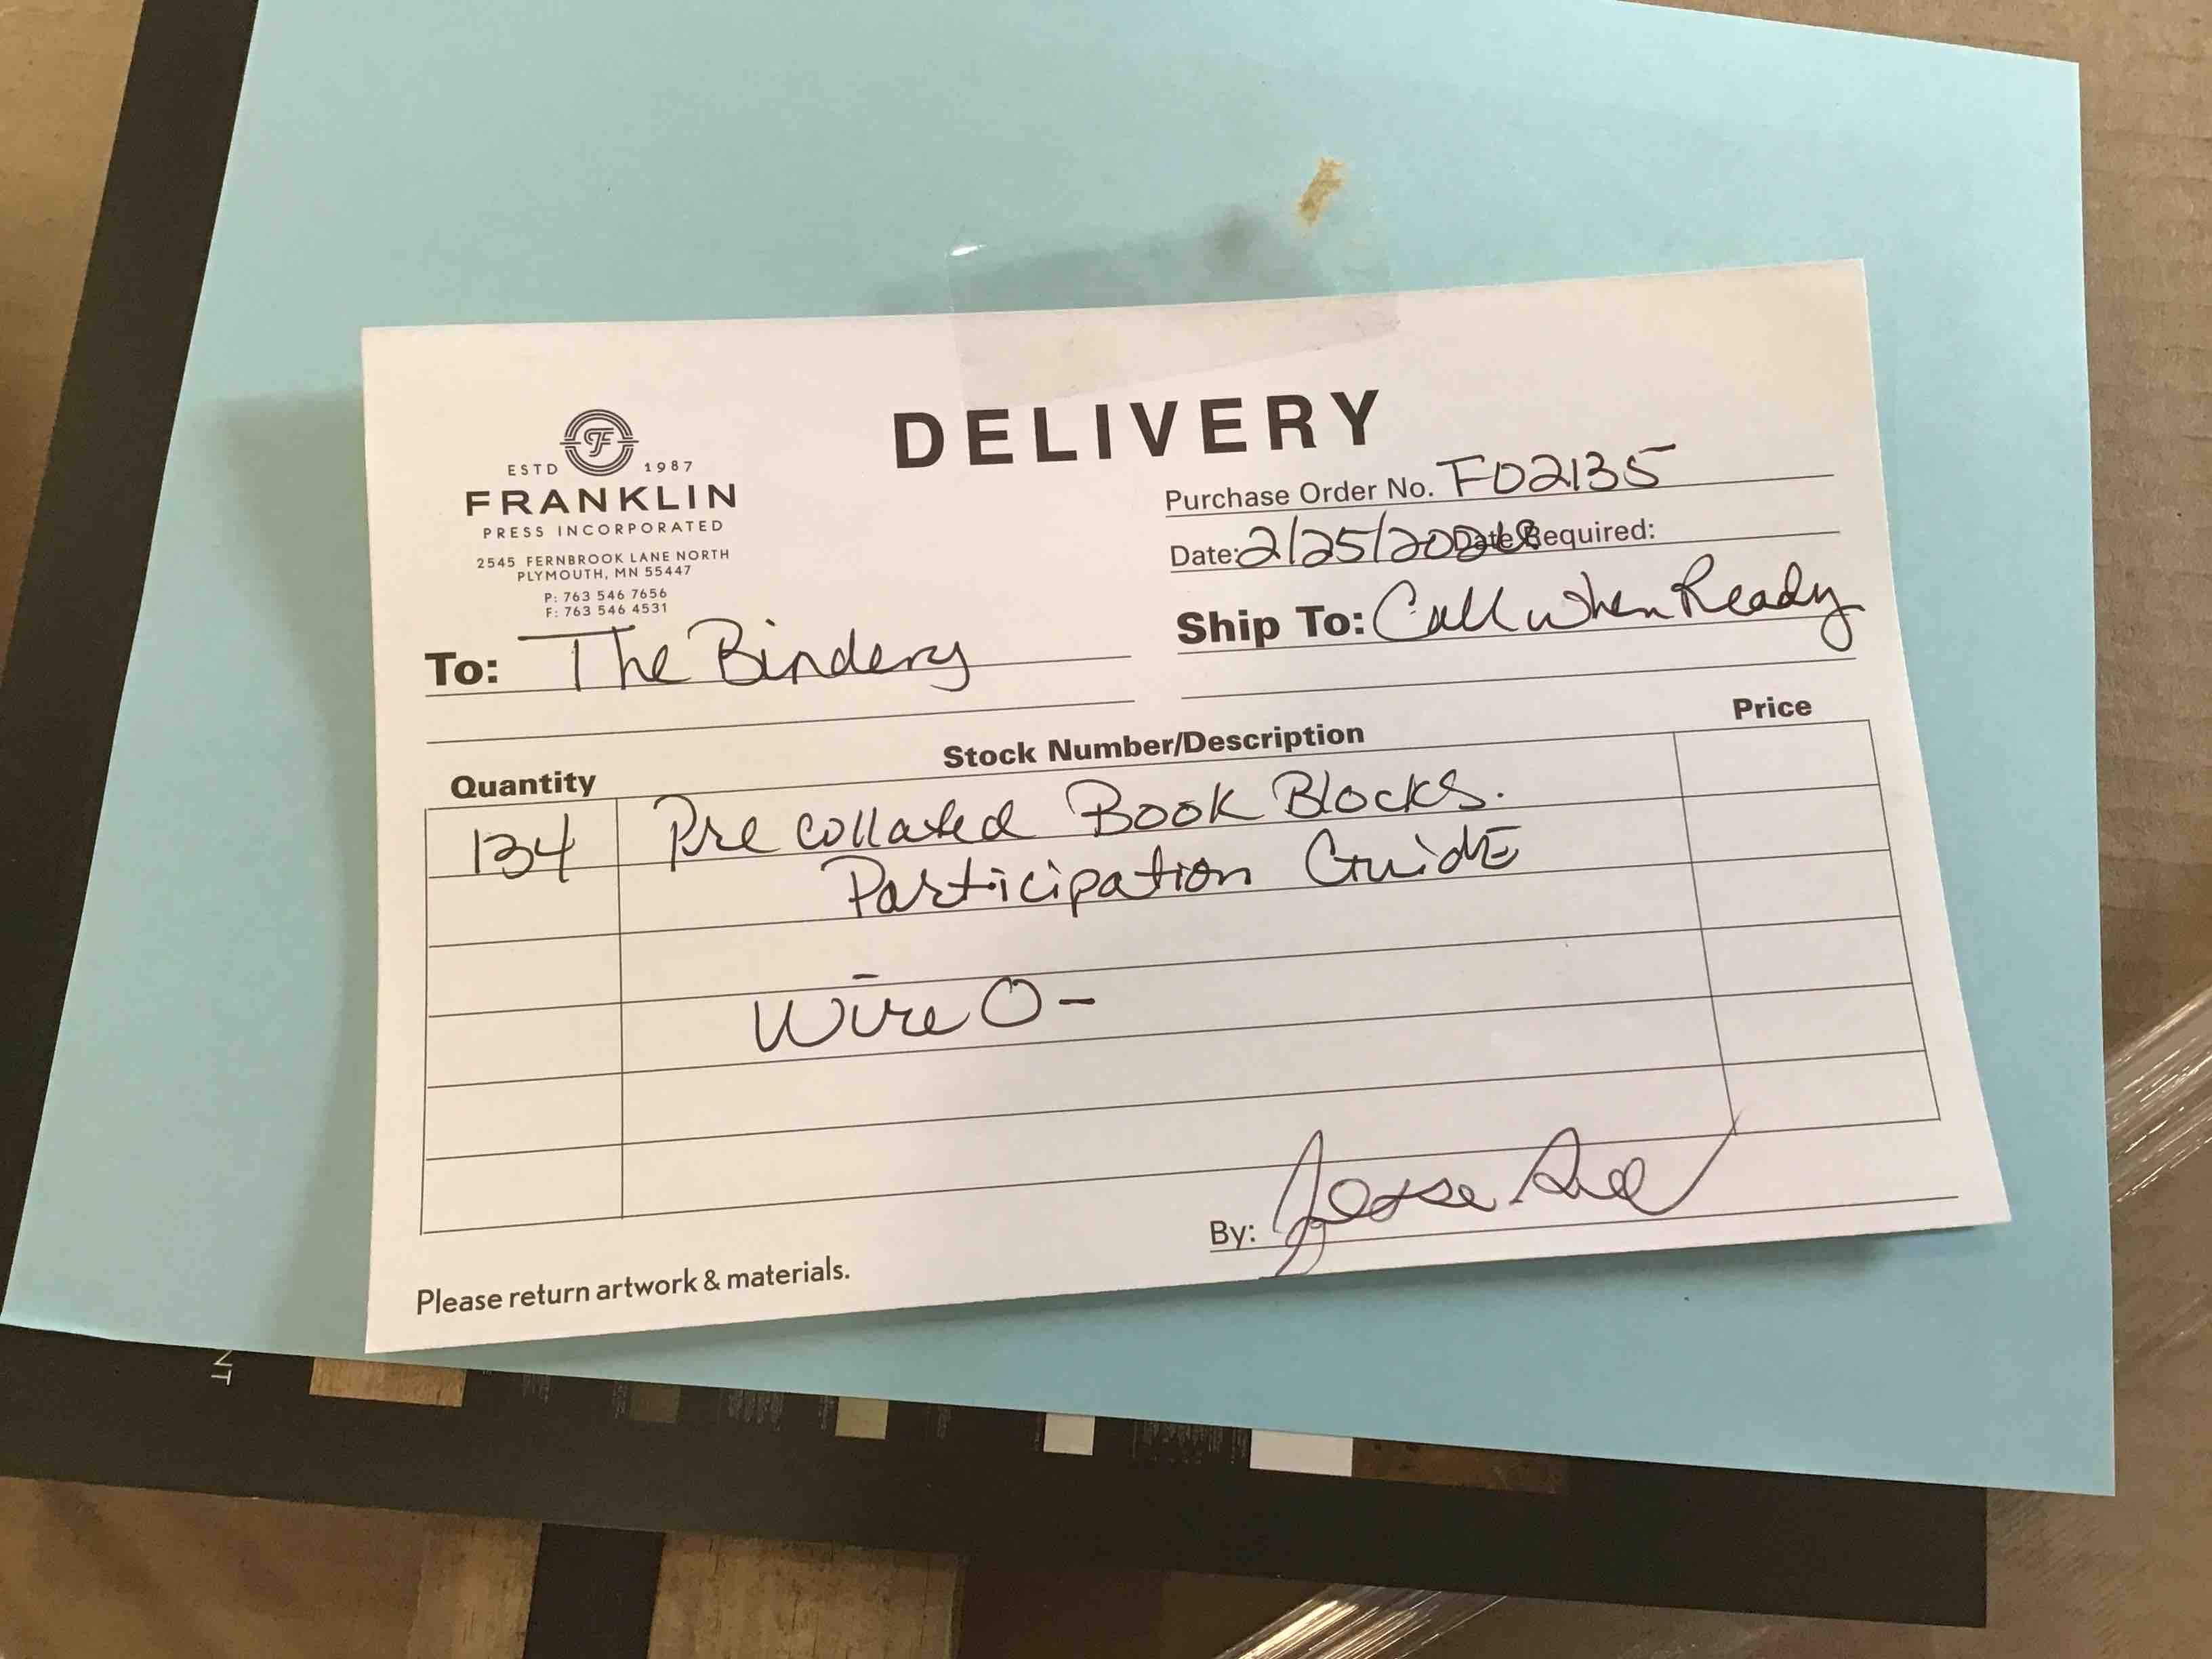 ESTD 1987
FRANKLIN
PRESS INCORPORATED
2545 FERNBROOK LANE NORTH
PLYMOUTH, MN 55447
P: 763 546 7656
F: 763 546 4531
DELIVERY
Purchase Order No. F02135
Date: 2/25/ Date Required:
To: The Bindery
Ship To: Call when Ready
Quantity Stock Number/Description Price
134 Pre collated Book Blocks.
Participation Guide
Wire O-
By: Jesse
Please return artwork & materials.
NT